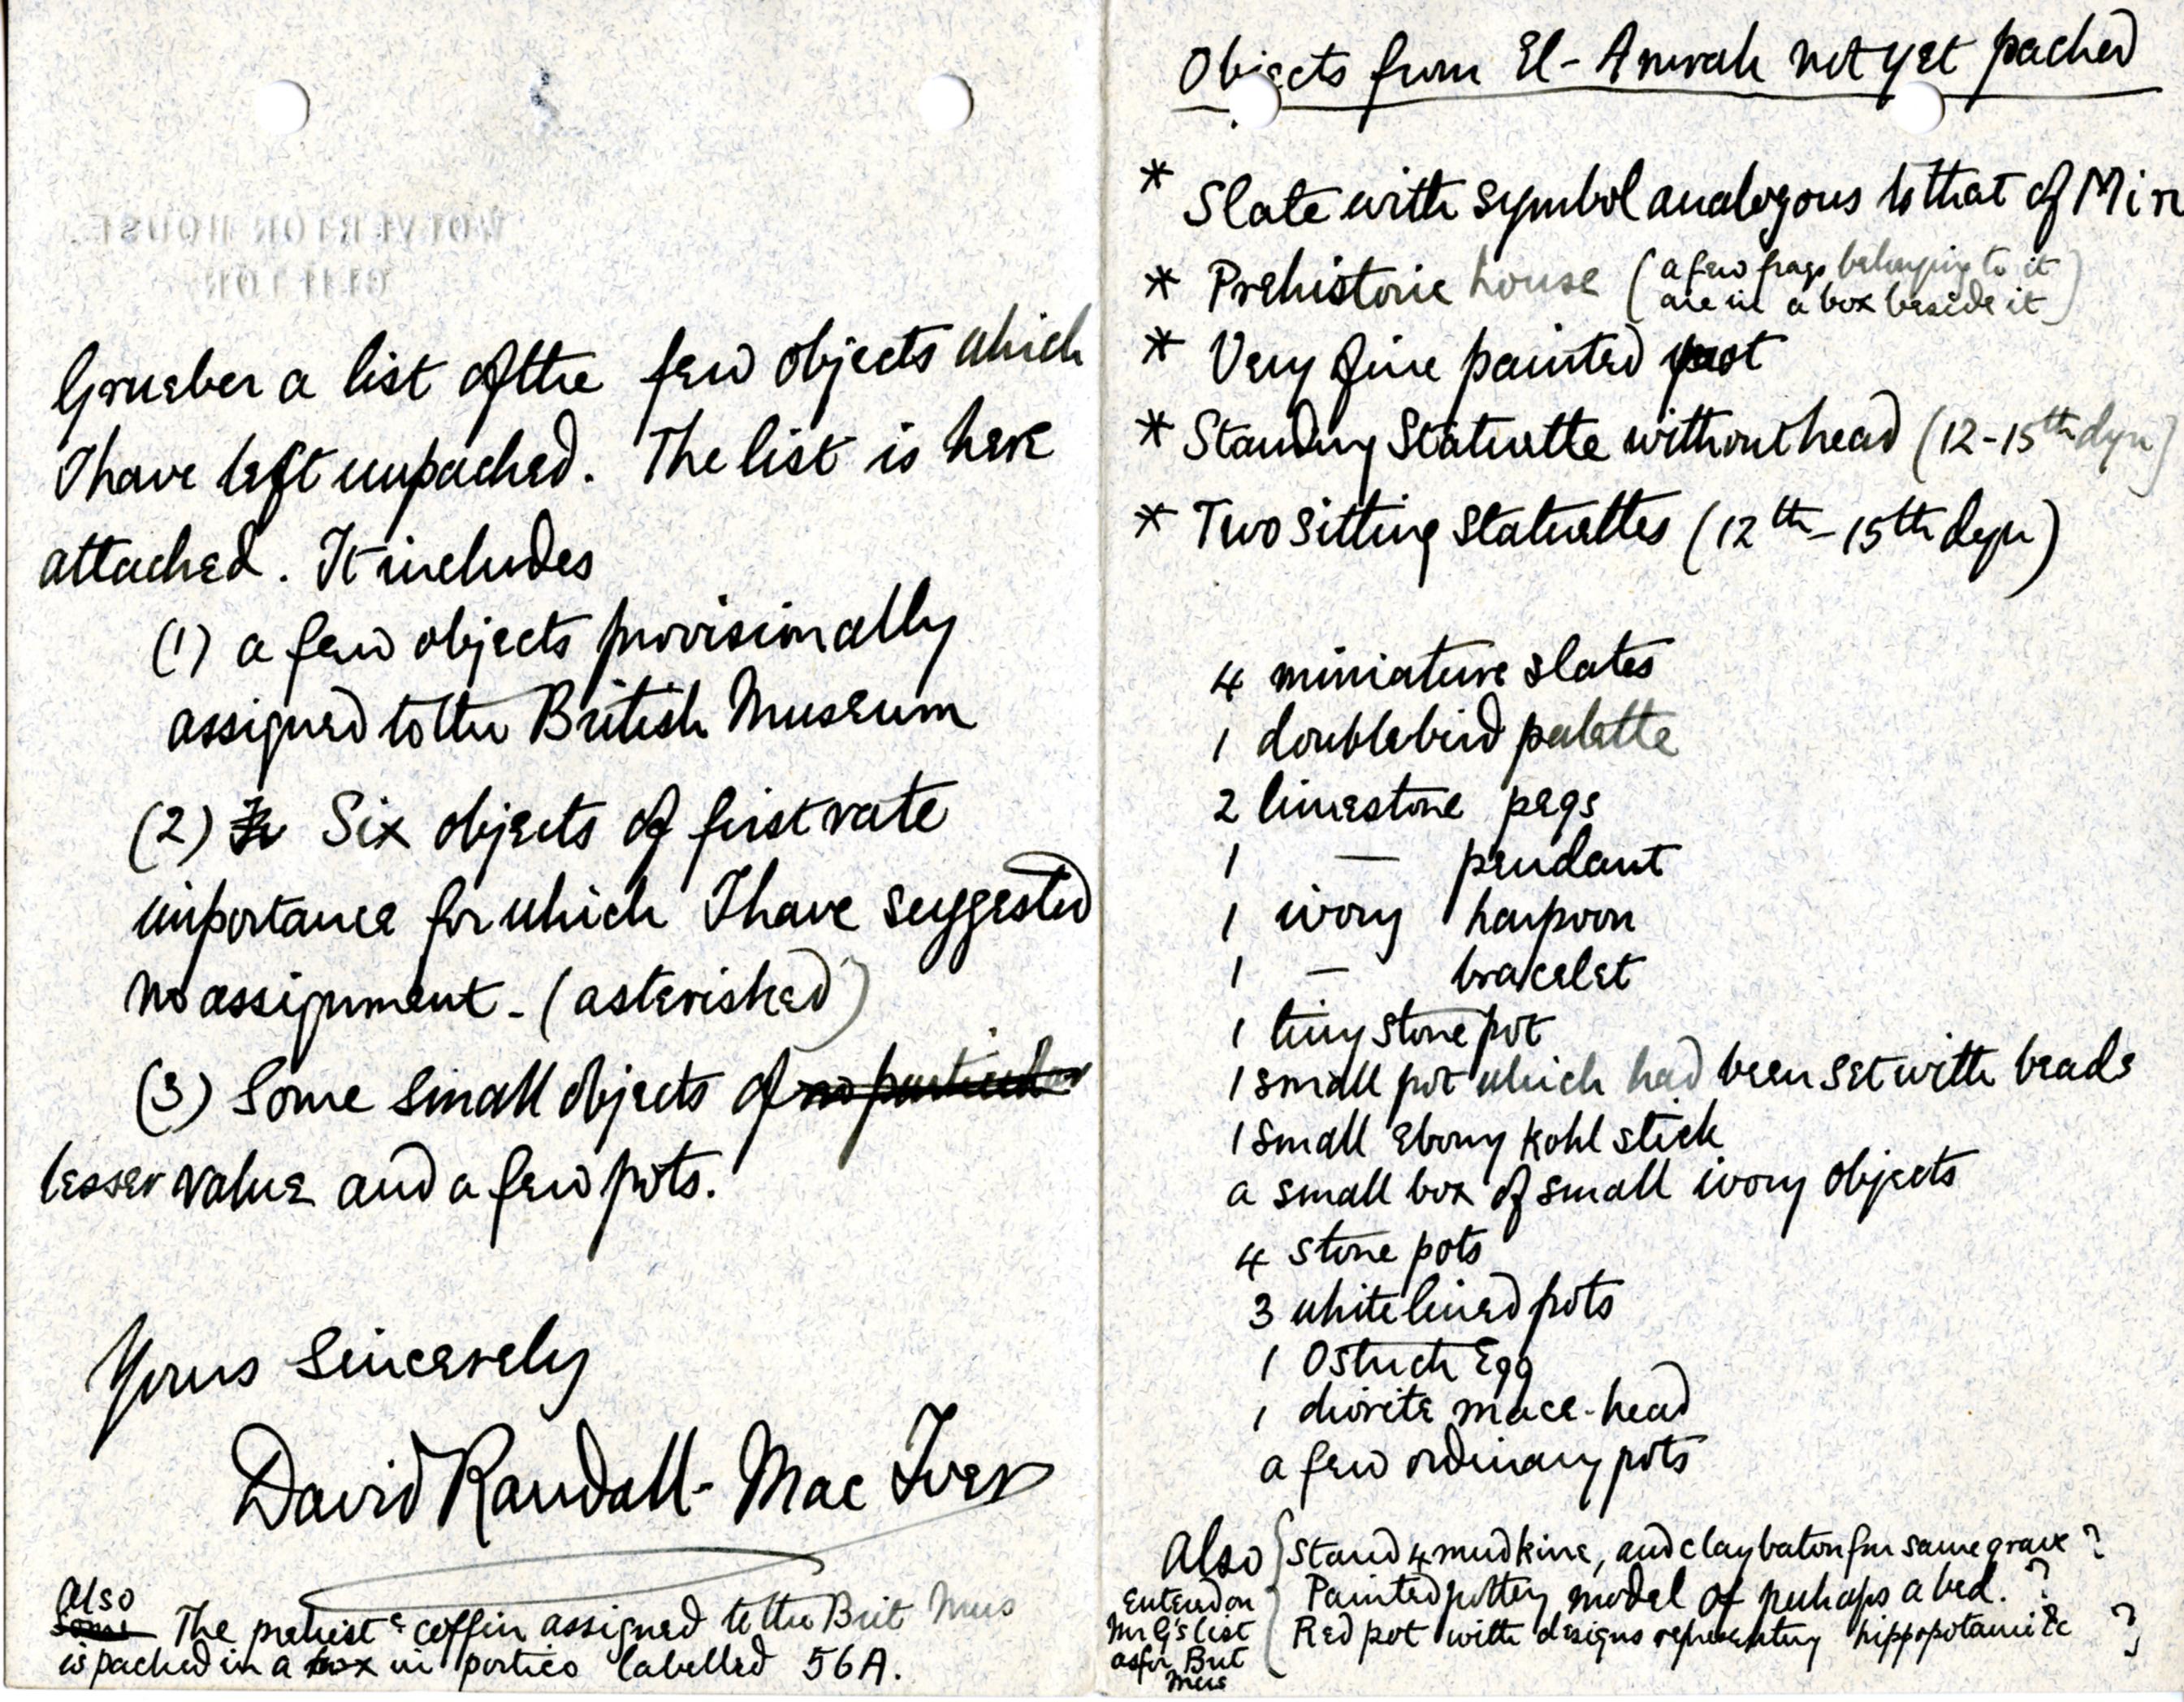 Grueber a list of the few objects which
I have left unpacked. The list is here
attached. It includes
(1) a few objects provisionally
assigned to the British Museum
(2) Six objects of first rate
importance for which I have suggested
no assignment - (asterisked)
(3) Some small objects of no particular
lesser value and a few pots.
Yours Sincerely
David Randall-Mac Iver
also
some The prehistc coffin assigned to the Brit Mus
is packed in a box in portico labelled 56A.
Objects from El-Amrah not yet packed
* Slate with symbol analogous to that of Min
* Prehistoric house (a few frags belonging to it
are in a box beside it)
* Very fine painted pot
* Standing Statuette without head (12-15th dyn)
* Two Sitting Statuettes (12th-15th dyn)
4 miniature slates
1 double bird palette
2 limestone pegs
1 — pendant
1 ivory harpoon
1 — bracelet
1 tiny stone pot
1 small pot which had been set with beads
1 small ebony kohl stick
a small box of small ivory objects
4 stone pots
3 white lined pots
1 Ostrich Egg
1 diorite mace-head
a few ordinary pots
Also { Stand 4 mud kine, and clay baton from same grave ?
Entered on Painted pottery model of perhaps a bed. ?
Mr G's list Red pot with designs representing hippopotami &c ?
as for Brit
Mus